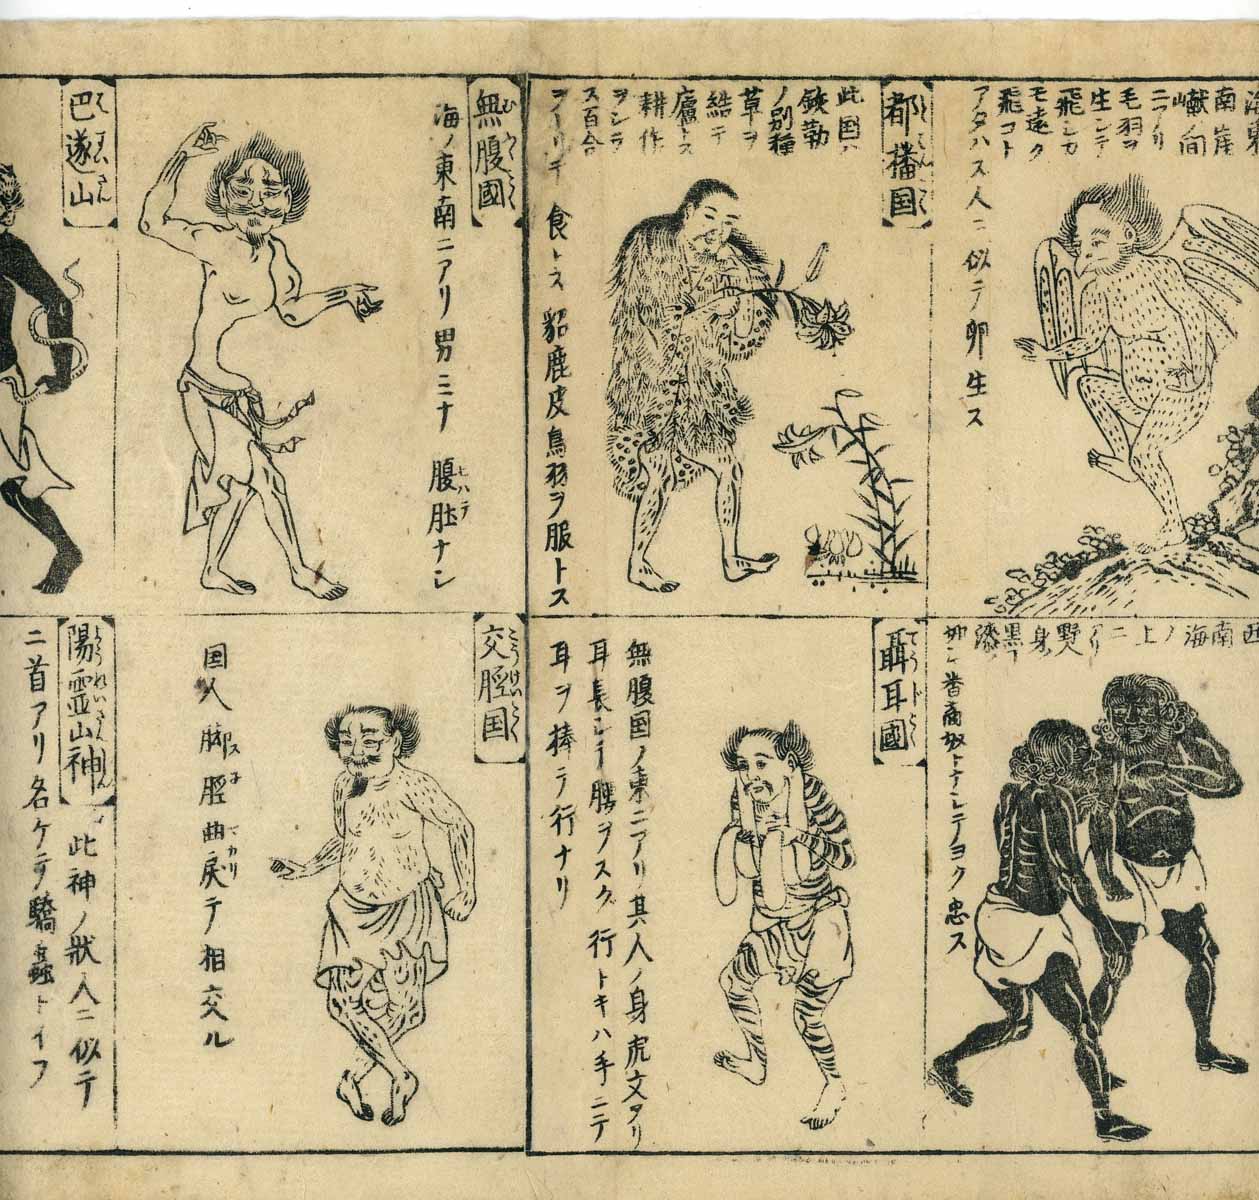 南崖
献向
ニアリ
毛羽ヲ
生シテ
飛シカ
モ遠ク
飛コト
アタハス人ニ似テ卵生ス
都播国
此国ハ
鉄勒
ノ別種
草ヲ
結テ
廬トス
耕作
ヲシラ
ス百合
ヲトリテ食トス貂鹿皮鳥羽ヲ服トス
無腹國
海ノ東南ニアリ男ミナ腹肚ナシ
巴遂山
西南海ノ上ニアリ野人身黒ク漆
如シ番商奴トナシテヨク忠ス
聶耳國
無腹国ノ東ニアリ其人ノ身虎文アリ
耳長シテ腰ヲスク行トキハ手ニテ
耳ヲ捧テ行ナリ
交脛国
国人脚脛曲戻テ相交ル
陽霊山神
此神ノ状人ニ似テ
ニ首アリ名ケテ驕蟲トイフ